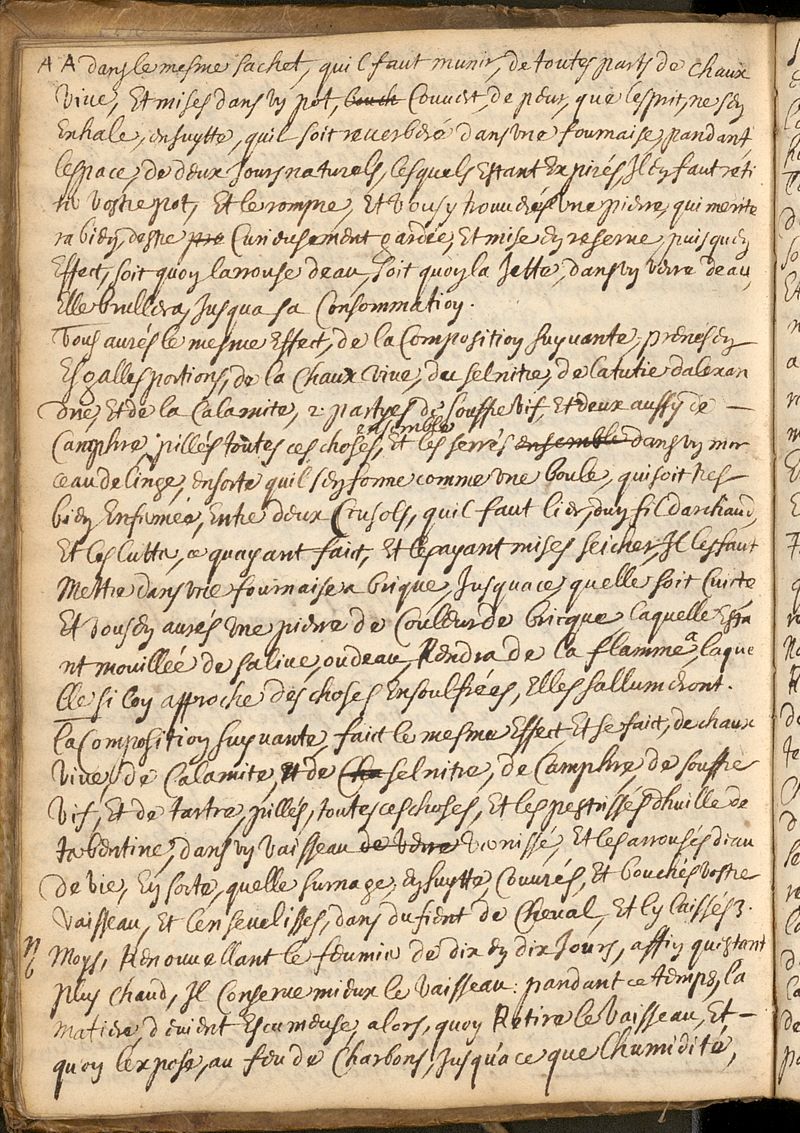 AA dans le mesme sachet, quil faut munir, de toutes parts de chaux
vive, Et mises dans vn pot, bouch Couvert, de peur, que lesprit, ne sen
Enhale, ensuytte, quil soit reverberé dans vne fournaise, pandant
lespace, de deux Jours naturels, lesquels Estant Expirés Il en faut reti
rer vostre pot, Et le rompre, Et vous y trouverés vne pierre, qui merite
ra bien, destre pre Curieusement gardée, Et mise en reserve, puisquen
Effect, soit quon larrouse deau, soit quon la Jette, dans vn verre deau,
Elle brullera, Jusqua sa Consommation.
Vous aurés le mesme Effect, de la Composition suyvante, prenes en
Esgalles portions, de la Chaux vive, du selnitre, de la tutie dalexan
drie, Et de la Calamite, 2. partyes de souffre vif, Et deux aussy de
Camphre, pillés toutes ces choses, et les serrés ensemble ensemble dans vn mor
ceau de linge, ensorte quil sen forme comme vne boule, qui soit tres
bien Enfumée, Entre deux Crusols, quil faut lier, dun fil darchaud,
Et les lutter, ce quayant faict, Et les ayant mises seicher, Il les faut
Mettre dans vne fournaise a brique, Jusquace, quelle soit Cuicte
Et vous en aurés vne pierre de Couleur de bricque laquelle Esta
nt mouillée de salive, ou deau, Rendra de la flamme, a laque
lle si lon approche des choses Ensoulfrées, Elles sallumeront.
La Composition suyvante, faict le mesme Effect, Et se faict, de chaux
vive, de Calamite, Et de Cha selnitre, de Camphre, de souffre
vif, Et de tartre, pillés, toutes ces choses, Et les pestrissés dhuille de
tabentine, dans vn vaisseau de verre vernissé, Et les arrousés deau
de vie, En sorte, quelle surnage, ensuytte, Couvrés, Et bouchés vostre
vaisseau, Et lensevelisses, dans du fient de Cheval, Et ly laissés 3.
Moys, Renouvellant le feumier de dix en dix Jours, affin questant
plus chaud, Il Conserve mieux le vaisseau: pandant ce temps, la
matiere devient Escumeuse, alors, quon Retire le vaisseau, Et
quon lexpose, au feu de Charbons, Jusqua ce que lhumidité,